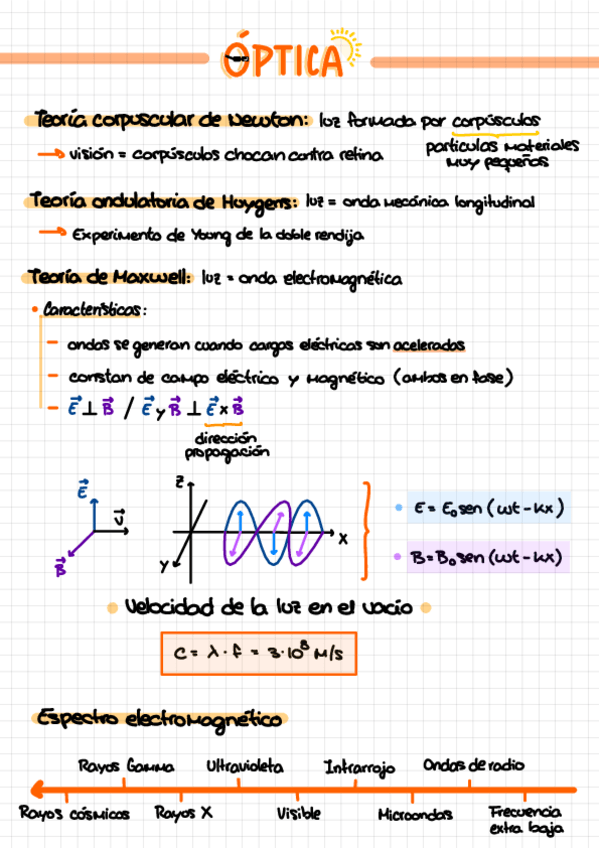 ÓPTICA
Teoría corpuscular de Newton: luz formada por corpúsculos
→ visión = corpúsculos chocan contra retina
partículas materiales
muy pequeños
Teoría ondulatoria de Huygens: luz = onda mecánica longitudinal
→ Experimento de Young de la doble rendija
Teoría de Maxwell: luz = onda electromagnética
• Características:
– ondas se generan cuando cargas eléctricas son aceleradas
– constan de campo eléctrico y magnético (ambos en fase)
– E⃗ ⊥ B⃗ / E⃗ y B⃗ ⊥ E⃗ x B⃗
dirección
propagación
E⃗
V⃗
B⃗
Z
X
Y
• E = E₀ sen (ωt - kx)
• B = B₀ sen (ωt - kx)
• Velocidad de la luz en el vacío •
C = λ · f = 3·10⁸ m/s
Espectro electromagnético
Rayos Gamma Ultravioleta Infrarrojo Ondas de radio
Rayos cósmicos Rayos X Visible Microondas Frecuencia
extra baja